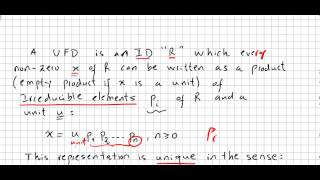 A UFD is an ID "R" which every
non-zero x of R can be written as a product
(empty product if x is a unit) of
Irreducible elements pᵢ of R and a
unit u:
x = u p₁ p₂ ... pₙ, n≥0 pᵢ
unit
This representation is unique in the sense: